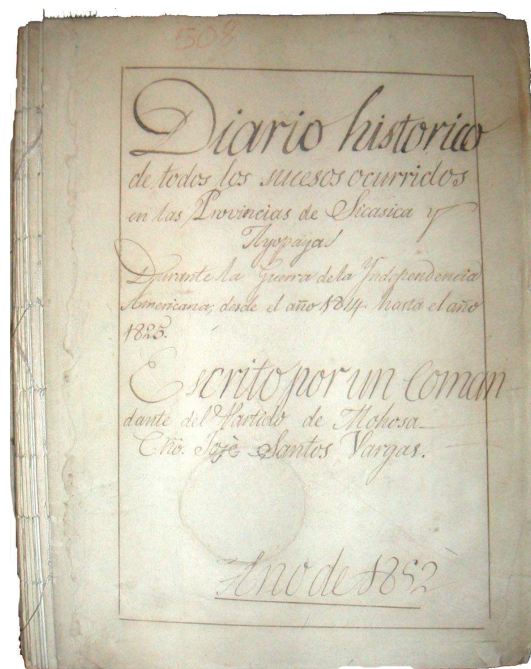 508
Diario historico
de todos los sucesos ocurridos
en las Provincias de Sicasica y
Ayopaya
Durante la Guerra de la Yndependencia
Americana, desde el año 1814 hasta el año
1825.
Escrito por un Coman
dante del Partido de Mohosa
Cño. José Santos Vargas.
Año de 1852